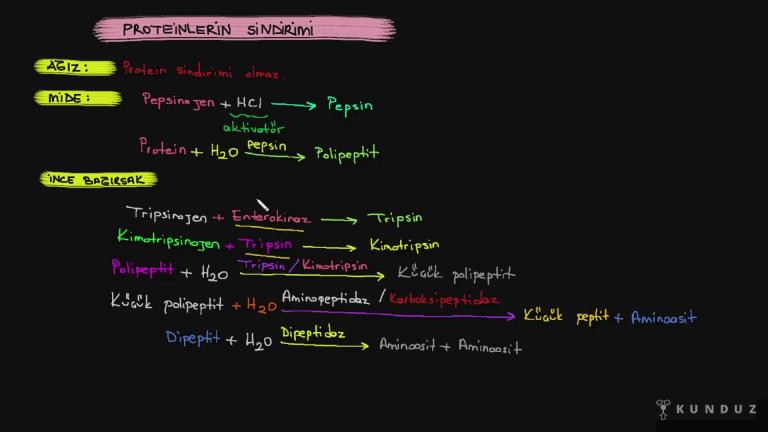 PROTEINLERIN SINDIRIMI
AĞIZ: Protein sindirimi olmaz.
MİDE: Pepsinojen + HCl → Pepsin
aktivatör
Protein + H2O pepsin → Polipeptit
İNCE BAĞIRSAK
Tripsinojen + Enterokinaz → Tripsin
Kimotripsinojen + Tripsin → Kimotripsin
Polipeptit + H2O Tripsin / Kimotripsin → Küçük polipeptit
Küçük polipeptit + H2O Aminopeptidaz / Karboksipeptidaz → Küçük peptit + Aminoasit
Dipeptit + H2O Dipeptidaz → Aminoasit + Aminoasit
KUNDUZ